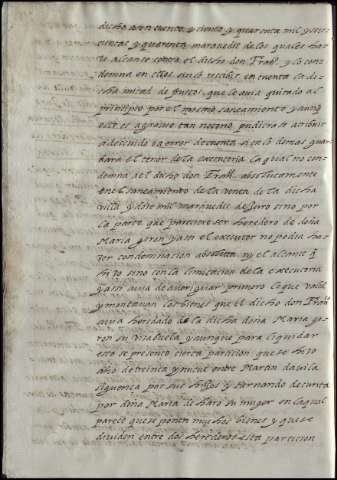 dicho ocn cuenta y ciento y quarenta mil y seis
cientas y quarenta maravedis de los quales haze
alcance contra el dicho don Fran^co y lo con
demna en ellos sin le recibir en cuenta la di
cha mitad de fructos que le avia quitado al
principio por el nostro saneamiento y aunq
este es agravio tan notorio pudiera se atribuir
a descuido o a error de cuenta si en lo demas guar
dara el tenor de la executoria la qual no con
demna al dicho don Fran^co absolutamente
en el saneamiento de la venta de la dicha
villa y dose mil maravedis de juro sino por
la parte que pareciere ser heredero de doña
Maria giron y assi el executor no podia ha
zer condemnacion absoluta ny el alcance q̃
hizo sino con la limitacion de la executoria
y assi avia de averiguar primero lo que valia
y montavan los bienes que el dicho don Fran^co
avia heredado de la dicha doña Maria gi
ron su visabuela y aunque para liquidar
esto se presento cierta particion que se hizo
año de treinta y nueve entre Martin davila
siguença por sus hijos y Hernando de curita
por doña Maria de haro su muger en la qual
parece que se ponen muchos bienes y que se
dividen entre dos herederos esta particion